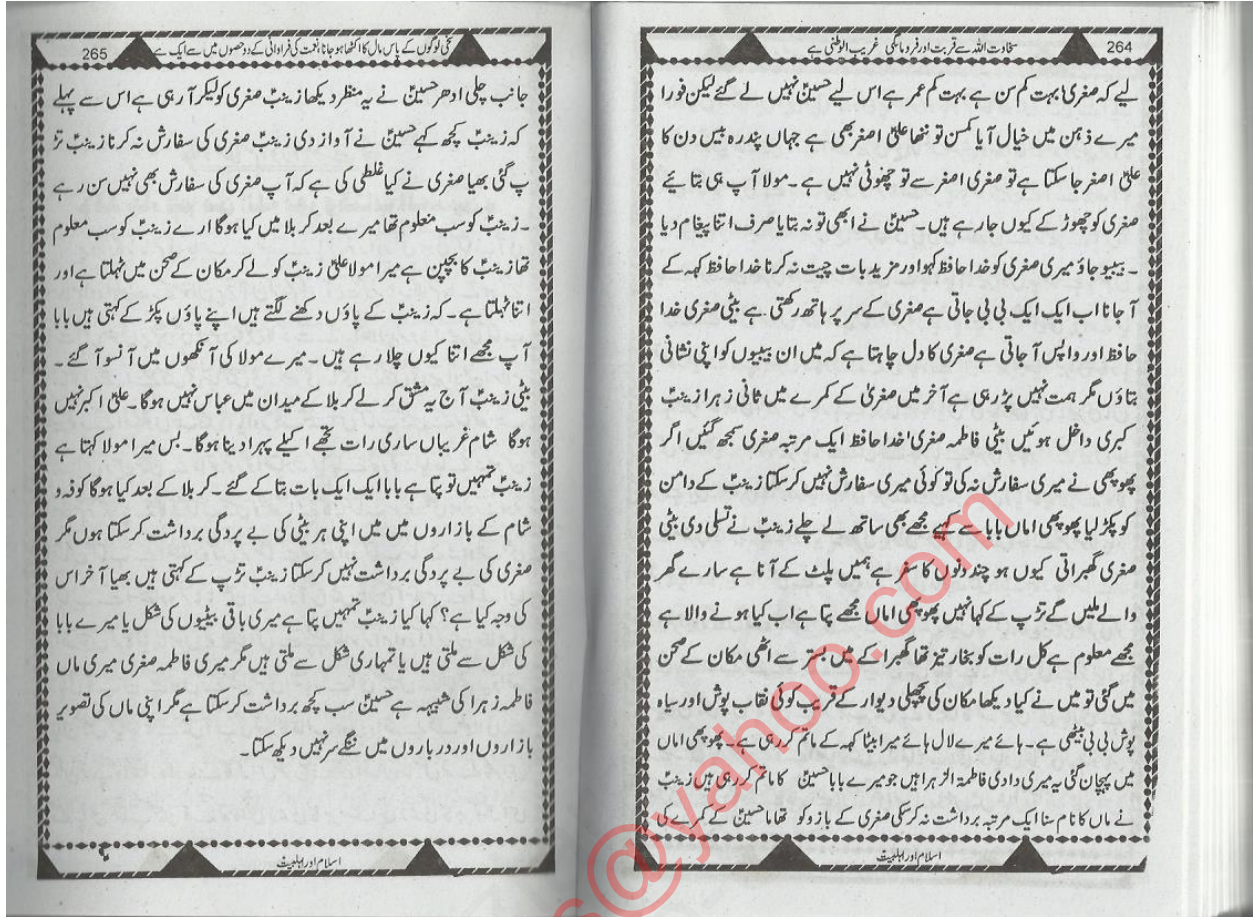 264
سخاوت اللہ سے قربت اور فرومائگی غریب الوطنی ہے
لیے کہ صغریٰ بہت کم سن ہے بہت کم عمر ہے اس لیے حسینؑ نہیں لے گئے لیکن فورا
میرے ذہن میں خیال آیا کمسن تو ننھا علیؑ اصغر بھی ہے جہاں پندرہ بیس دن کا
علیؑ اصغر جا سکتا ہے تو صغری اصغر سے تو چھوٹی نہیں ہے۔ مولا آپ ہی بتائیے
صغری کو چھوڑ کے کیوں جارہے ہیں۔ حسینؑ نے ابھی تو نہ بتایا صرف اتنا پیغام دیا
۔ بیبیو جاؤ میری صغری کو خدا حافظ کہو اور مزید بات چیت نہ کرنا خدا حافظ کہہ کے
آ جانا اب ایک ایک بی بی جاتی ہے صغری کے سر پر ہاتھ رکھتی ہے بیٹی صغری خدا
حافظ اور واپس آ جاتی ہے صغری کا دل چاہتا ہے کہ میں ان بیبیوں کو اپنی نشانی
بتاؤں مگر ہمت نہیں پڑ رہی ہے آخر میں صغریٰ کے کمرے میں ثانی زہرا زینبؑ
کبری داخل ہوئیں بیٹی فاطمہ صغری' خدا حافظ ایک مرتبہ صغری سمجھ گئیں اگر
پھوپھی نے میری سفارش نہ کی تو کوئی میری سفارش نہیں کر سکتا زینبؑ کے دامن
کو پکڑ لیا پھوپھی اماں بابا سے کہیے مجھے بھی ساتھ لے چلے زینبؑ نے تسلی دی بیٹی
صغری گھبراتی کیوں ہو چند دنوں کا سفر ہے ہمیں پلٹ کے آنا ہے سارے گھر
والے ملیں گے تڑپ کے کہا نہیں پھوپھی اماں مجھے پتا ہے اب کیا ہونے والا ہے
مجھے معلوم ہے کل رات کو بخار تیز تھا گھبرا کے میں بستر سے اٹھی مکان کے صحن
میں گئی تو میں نے کیا دیکھا مکان کی پچھلی دیوار کے قریب کوئی نقاب پوش اور سیاہ
پوش بی بی بیٹھی ہے۔ ہائے میرے لال ہائے میرا بیٹا کہہ کے ماتم کر رہی ہے۔ پھوپھی اماں
میں پہچان گئی یہ میری دادی فاطمۃ الزہرا ہیں جو میرے بابا حسینؑ کا ماتم کر رہی ہیں زینبؑ
نے ماں کا نام سنا ایک مرتبہ برداشت نہ کر سکی صغری کے بازو کو تھاما حسینؑ کے کمرے کی
اسلام اور اہلبیت
265
سخی لوگوں کے پاس مال کا اکٹھا ہو جانا، نعمت کی فراوانی کے دو حصوں میں سے ایک ہے
جانب چلی ادھر حسینؑ نے یہ منظر دیکھا زینبؑ صغری کو لیکر آ رہی ہے اس سے پہلے
کہ زینبؑ کچھ کہے حسینؑ نے آواز دی زینبؑ صغری کی سفارش نہ کرنا زینبؑ تڑ
پ گئی بھیا صغری نے کیا غلطی کی ہے کہ آپ صغری کی سفارش بھی نہیں سن رہے
۔ زینبؑ کو سب معلوم تھا میرے بعد کربلا میں کیا ہوگا ارے زینبؑ کو سب معلوم
تھا زینبؑ کا بچپن ہے میرا مولا علیؑ زینبؑ کو لے کر مکان کے صحن میں ٹہلتا ہے اور
اتنا ٹہلتا ہے۔ کہ زینبؑ کے پاؤں دکھنے لگتے ہیں اپنے پاؤں پکڑ کے کہتی ہیں بابا
آپ مجھے اتنا کیوں چلا رہے ہیں۔ میرے مولا کی آنکھوں میں آنسو آ گئے۔
بیٹی زینبؑ آج یہ مشق کر لے کربلا کے میدان میں عباس نہیں ہوگا۔ علیؑ اکبر نہیں
ہوگا شام غریباں ساری رات تجھے اکیلے پہرا دینا ہوگا۔ بس میرا مولا کہتا ہے
زینبؑ تمہیں تو پتا ہے بابا ایک ایک بات بتا کے گئے۔ کربلا کے بعد کیا ہوگا کوفہ و
شام کے بازاروں میں میں اپنی ہر بیٹی کی بے پردگی برداشت کر سکتا ہوں مگر
صغری کی بے پردگی برداشت نہیں کر سکتا زینبؑ تڑپ کے کہتی ہیں بھیا آخر اس
کی وجہ کیا ہے؟ کہا کیا زینبؑ تمہیں پتا ہے میری باقی بیٹیوں کی شکل یا میرے بابا
کی شکل سے ملتی ہیں یا تمہاری شکل سے ملتی ہیں مگر میری فاطمہ صغری میری ماں
فاطمہ زہرا کی شبیہہ ہے حسینؑ سب کچھ برداشت کر سکتا ہے مگر اپنی ماں کی تصویر
بازاروں اور درباروں میں ننگے سر نہیں دیکھ سکتا۔
اسلام اور اہلبیت
s@yahoo.com